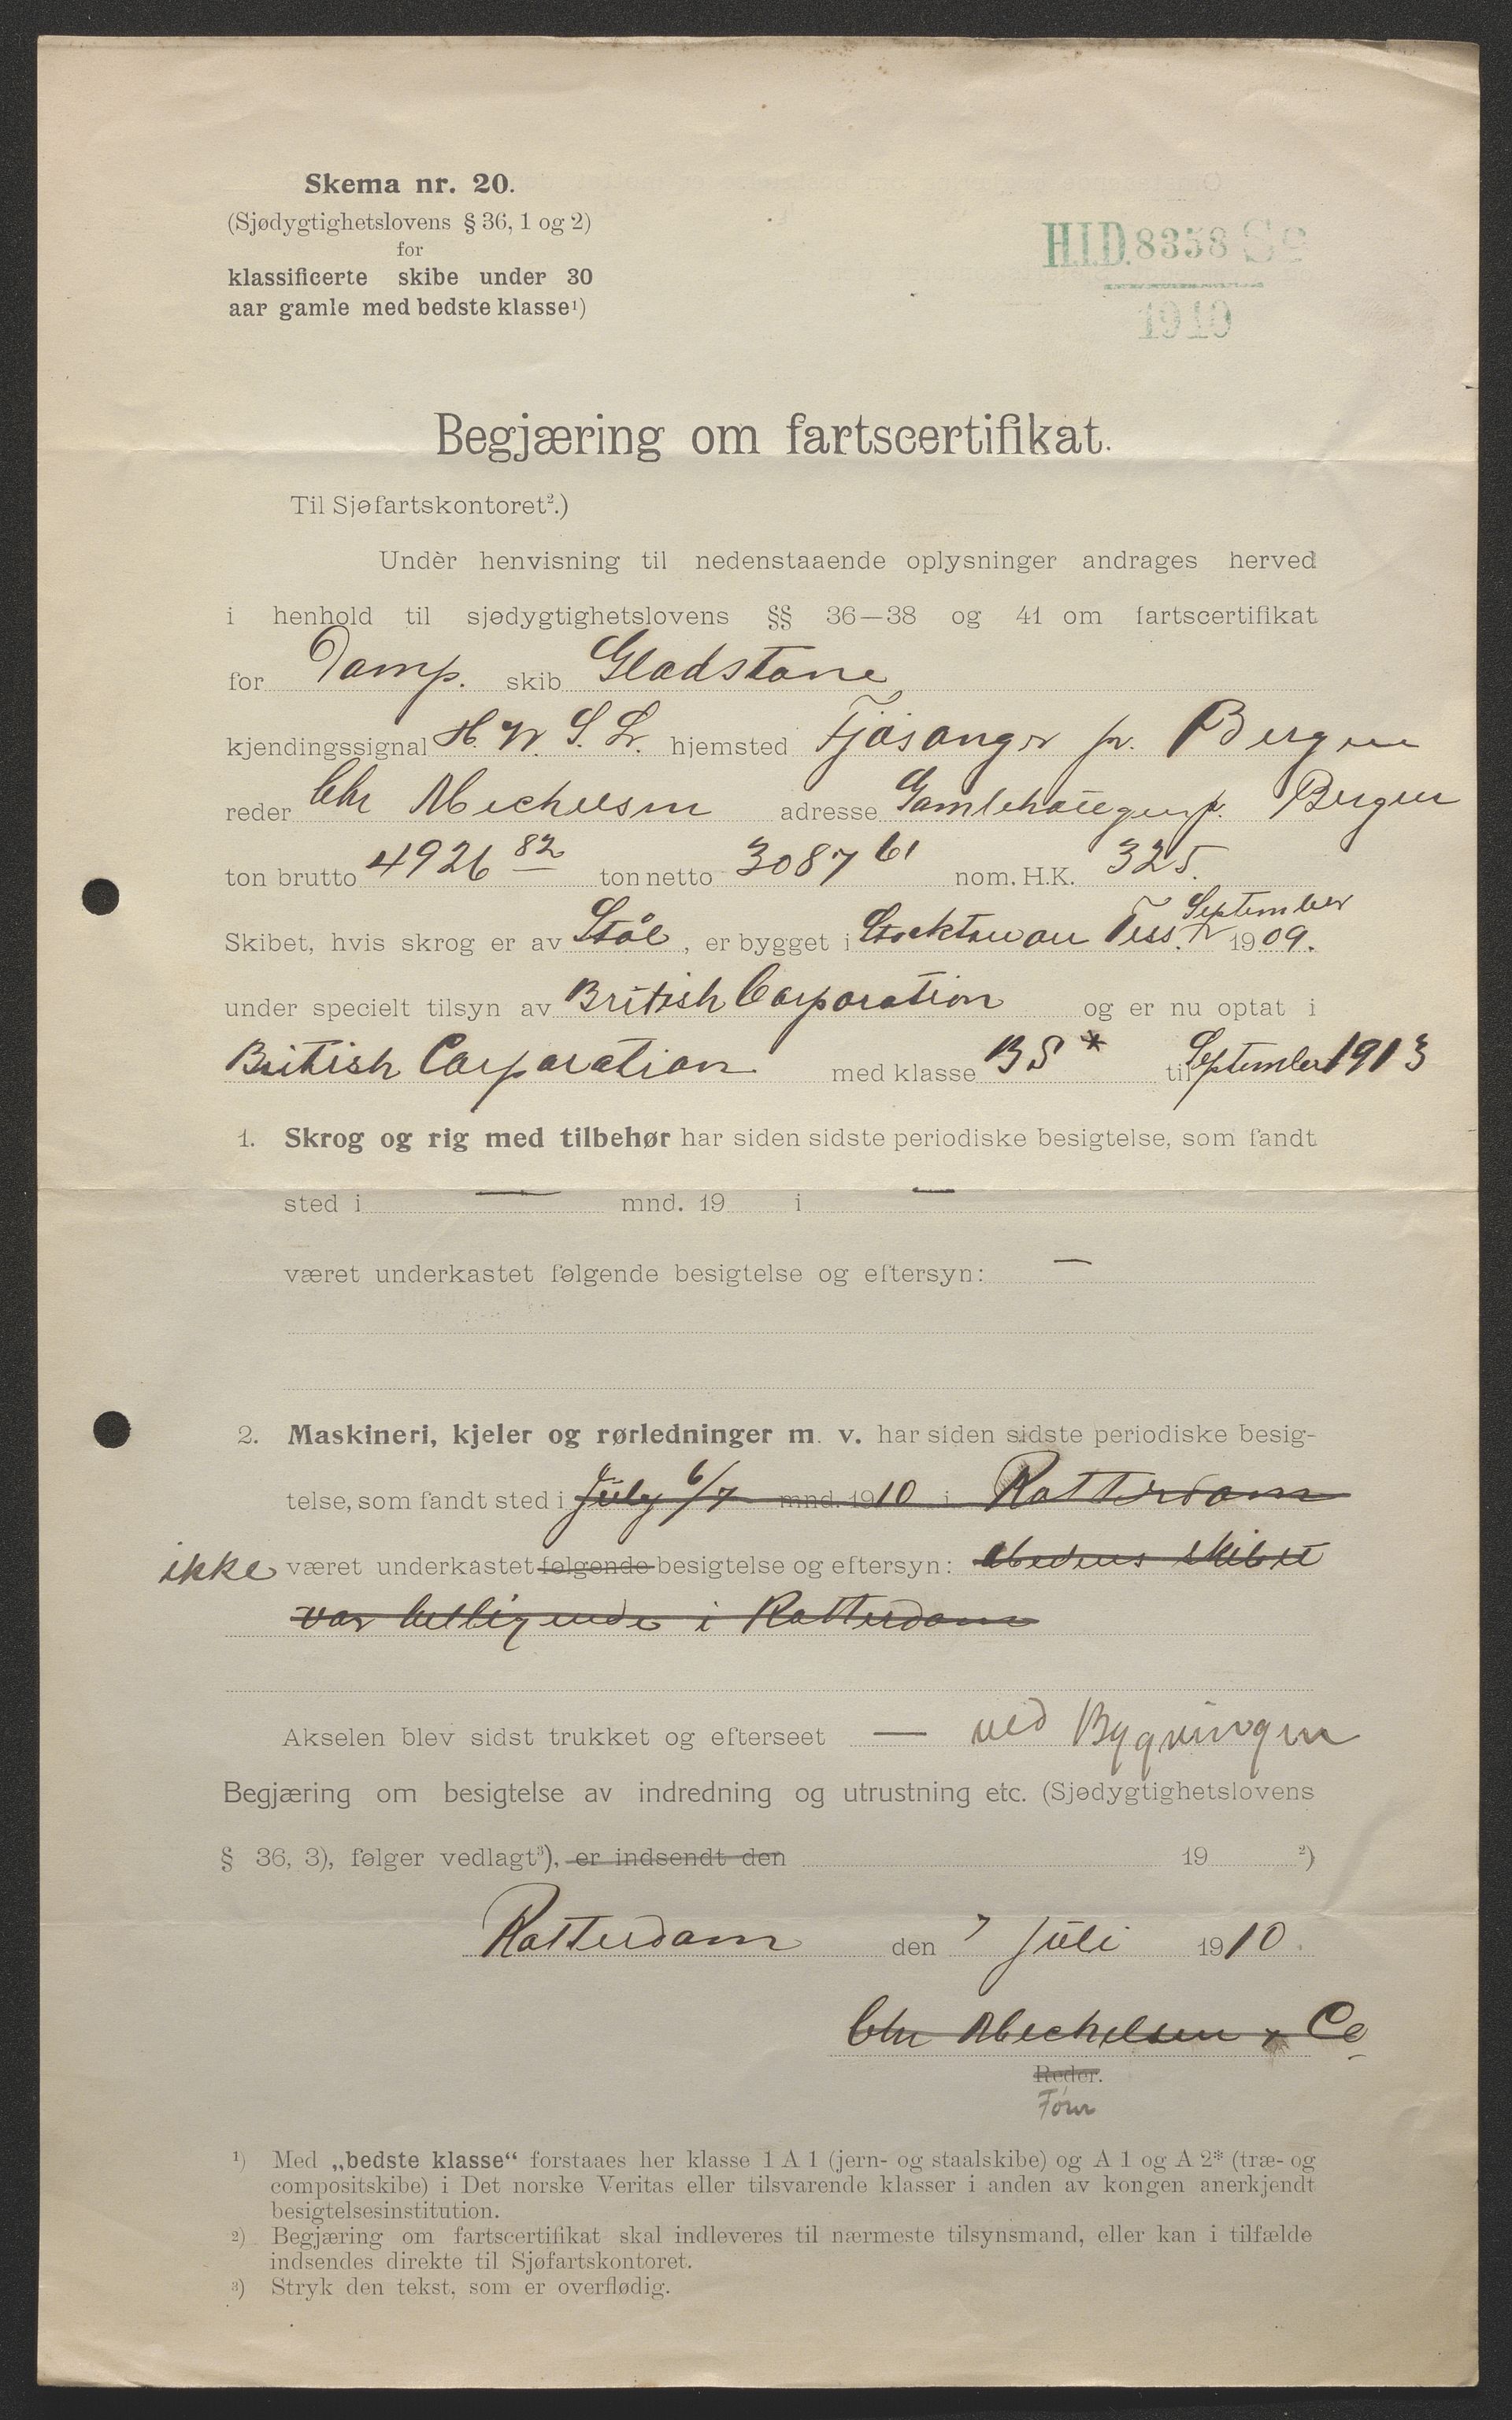 Skema nr. 20.
(Sjødygtighetslovens § 36, 1 og 2)
for
klassificerte skibe under 30
aar gamle med bedste klasse¹)
H.I.D. 8358 Se
1910
Begjæring om fartscertifikat.
Til Sjøfartskontoret².)
Under henvisning til nedenstaaende oplysninger andrages herved
i henhold til sjødygtighetslovens §§ 36—38 og 41 om fartscertifikat
for Damp. skib Gladstone
kjendingssignal H. W. S. L. hjemsted Fjøsanger pr. Bergen
reder Chr Michelsen adresse Gamlehaugen p. Bergen
ton brutto 4926 82 ton netto 3087 61 nom. H.K. 325.
Skibet, hvis skrog er av Stål, er bygget i Stockton on Tees. September 1909.
under specielt tilsyn av British Corporation og er nu optat i
British Corporation med klasse BS * til September 1913
1. Skrog og rig med tilbehør har siden sidste periodiske besigtelse, som fandt
sted i — mnd. 19 i —
været underkastet følgende besigtelse og eftersyn: —
2. Maskineri, kjeler og rørledninger m. v. har siden sidste periodiske besig-
telse, som fandt sted i July 6/7 mnd. 1910 i Rotterdam
ikke været underkastet følgende besigtelse og eftersyn: Medens skibet
var beliggende i Rotterdam
Akselen blev sidst trukket og efterseet — ved Bygningen
Begjæring om besigtelse av indredning og utrustning etc. (Sjødygtighetslovens
§ 36, 3), følger vedlagt³), er indsendt den 19 ²)
Rotterdam den 7 Juli 1910.
Chr Michelsen & Co
Reder.
¹) Med „bedste klasse“ forstaaes her klasse 1 A 1 (jern- og staalskibe) og A 1 og A 2* (træ- og
compositskibe) i Det norske Veritas eller tilsvarende klasser i anden av kongen anerkjendt
besigtelsesinstitution.
²) Begjæring om fartscertifikat skal indleveres til nærmeste tilsynsmand, eller kan i tilfælde
indsendes direkte til Sjøfartskontoret.
³) Stryk den tekst, som er overflødig.